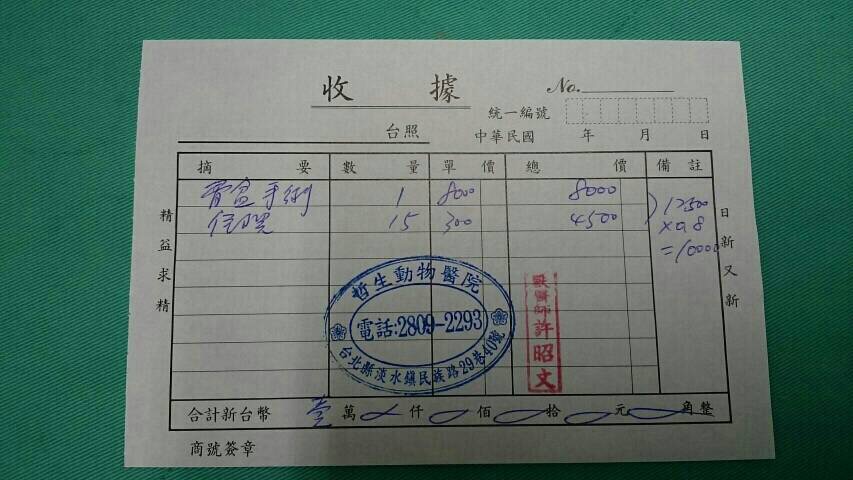 收 據
No.
統一編號
台照
中華民國 年 月 日
摘 要 數 量 單 價 總 價 備 註
骨盆手術 1 8000 8000
住院 15 300 4500
12500
×0.8
=10000
精益求精
日新又新
哲生動物醫院
電話:2809-2293
台北縣淡水鎮民族路29巷40號
獸醫師許昭文
合計新台幣 壹 萬 仟 佰 拾 元 角整
商號簽章